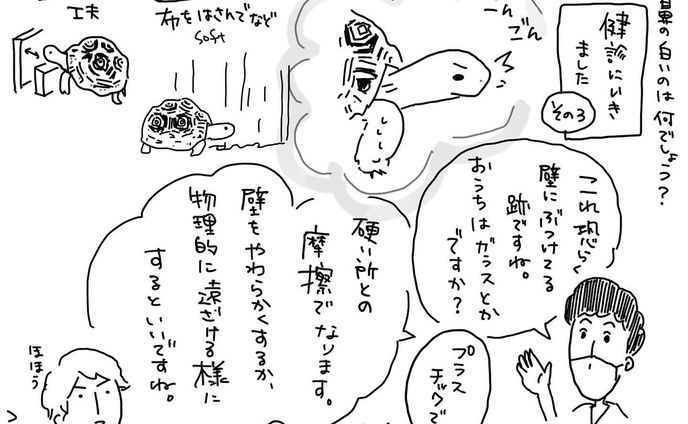 鼻の白いのは何でしょう？
健診にいき
ました
その3
ごん
布をはさんでなど
soft
工夫
これ恐らく
壁にぶつけてる
跡ですね。
おうちはガラスとか
ですか？
硬い所との
摩擦でなります。
壁をやわらかくするか、
物理的に遠ざける様に
するといいですね。
プラス
チックで
ほほう